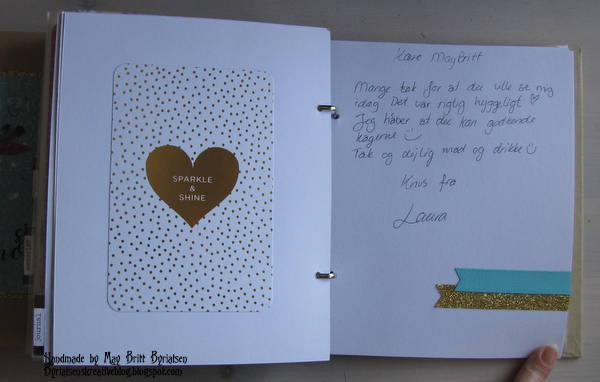 SPARKLE
&
SHINE
Kære MayBritt
Mange tak for at du ville se mig
idag. Det var rigtig hyggeligt ♡
Jeg håber at du kan godkende
kagerne ☺
Tak og dejlig mad og drikke ☺
Knus fra
Laura
journal
Handmade by May Britt Byrialsen
Byrialsenskreativeblog.blogspot.com